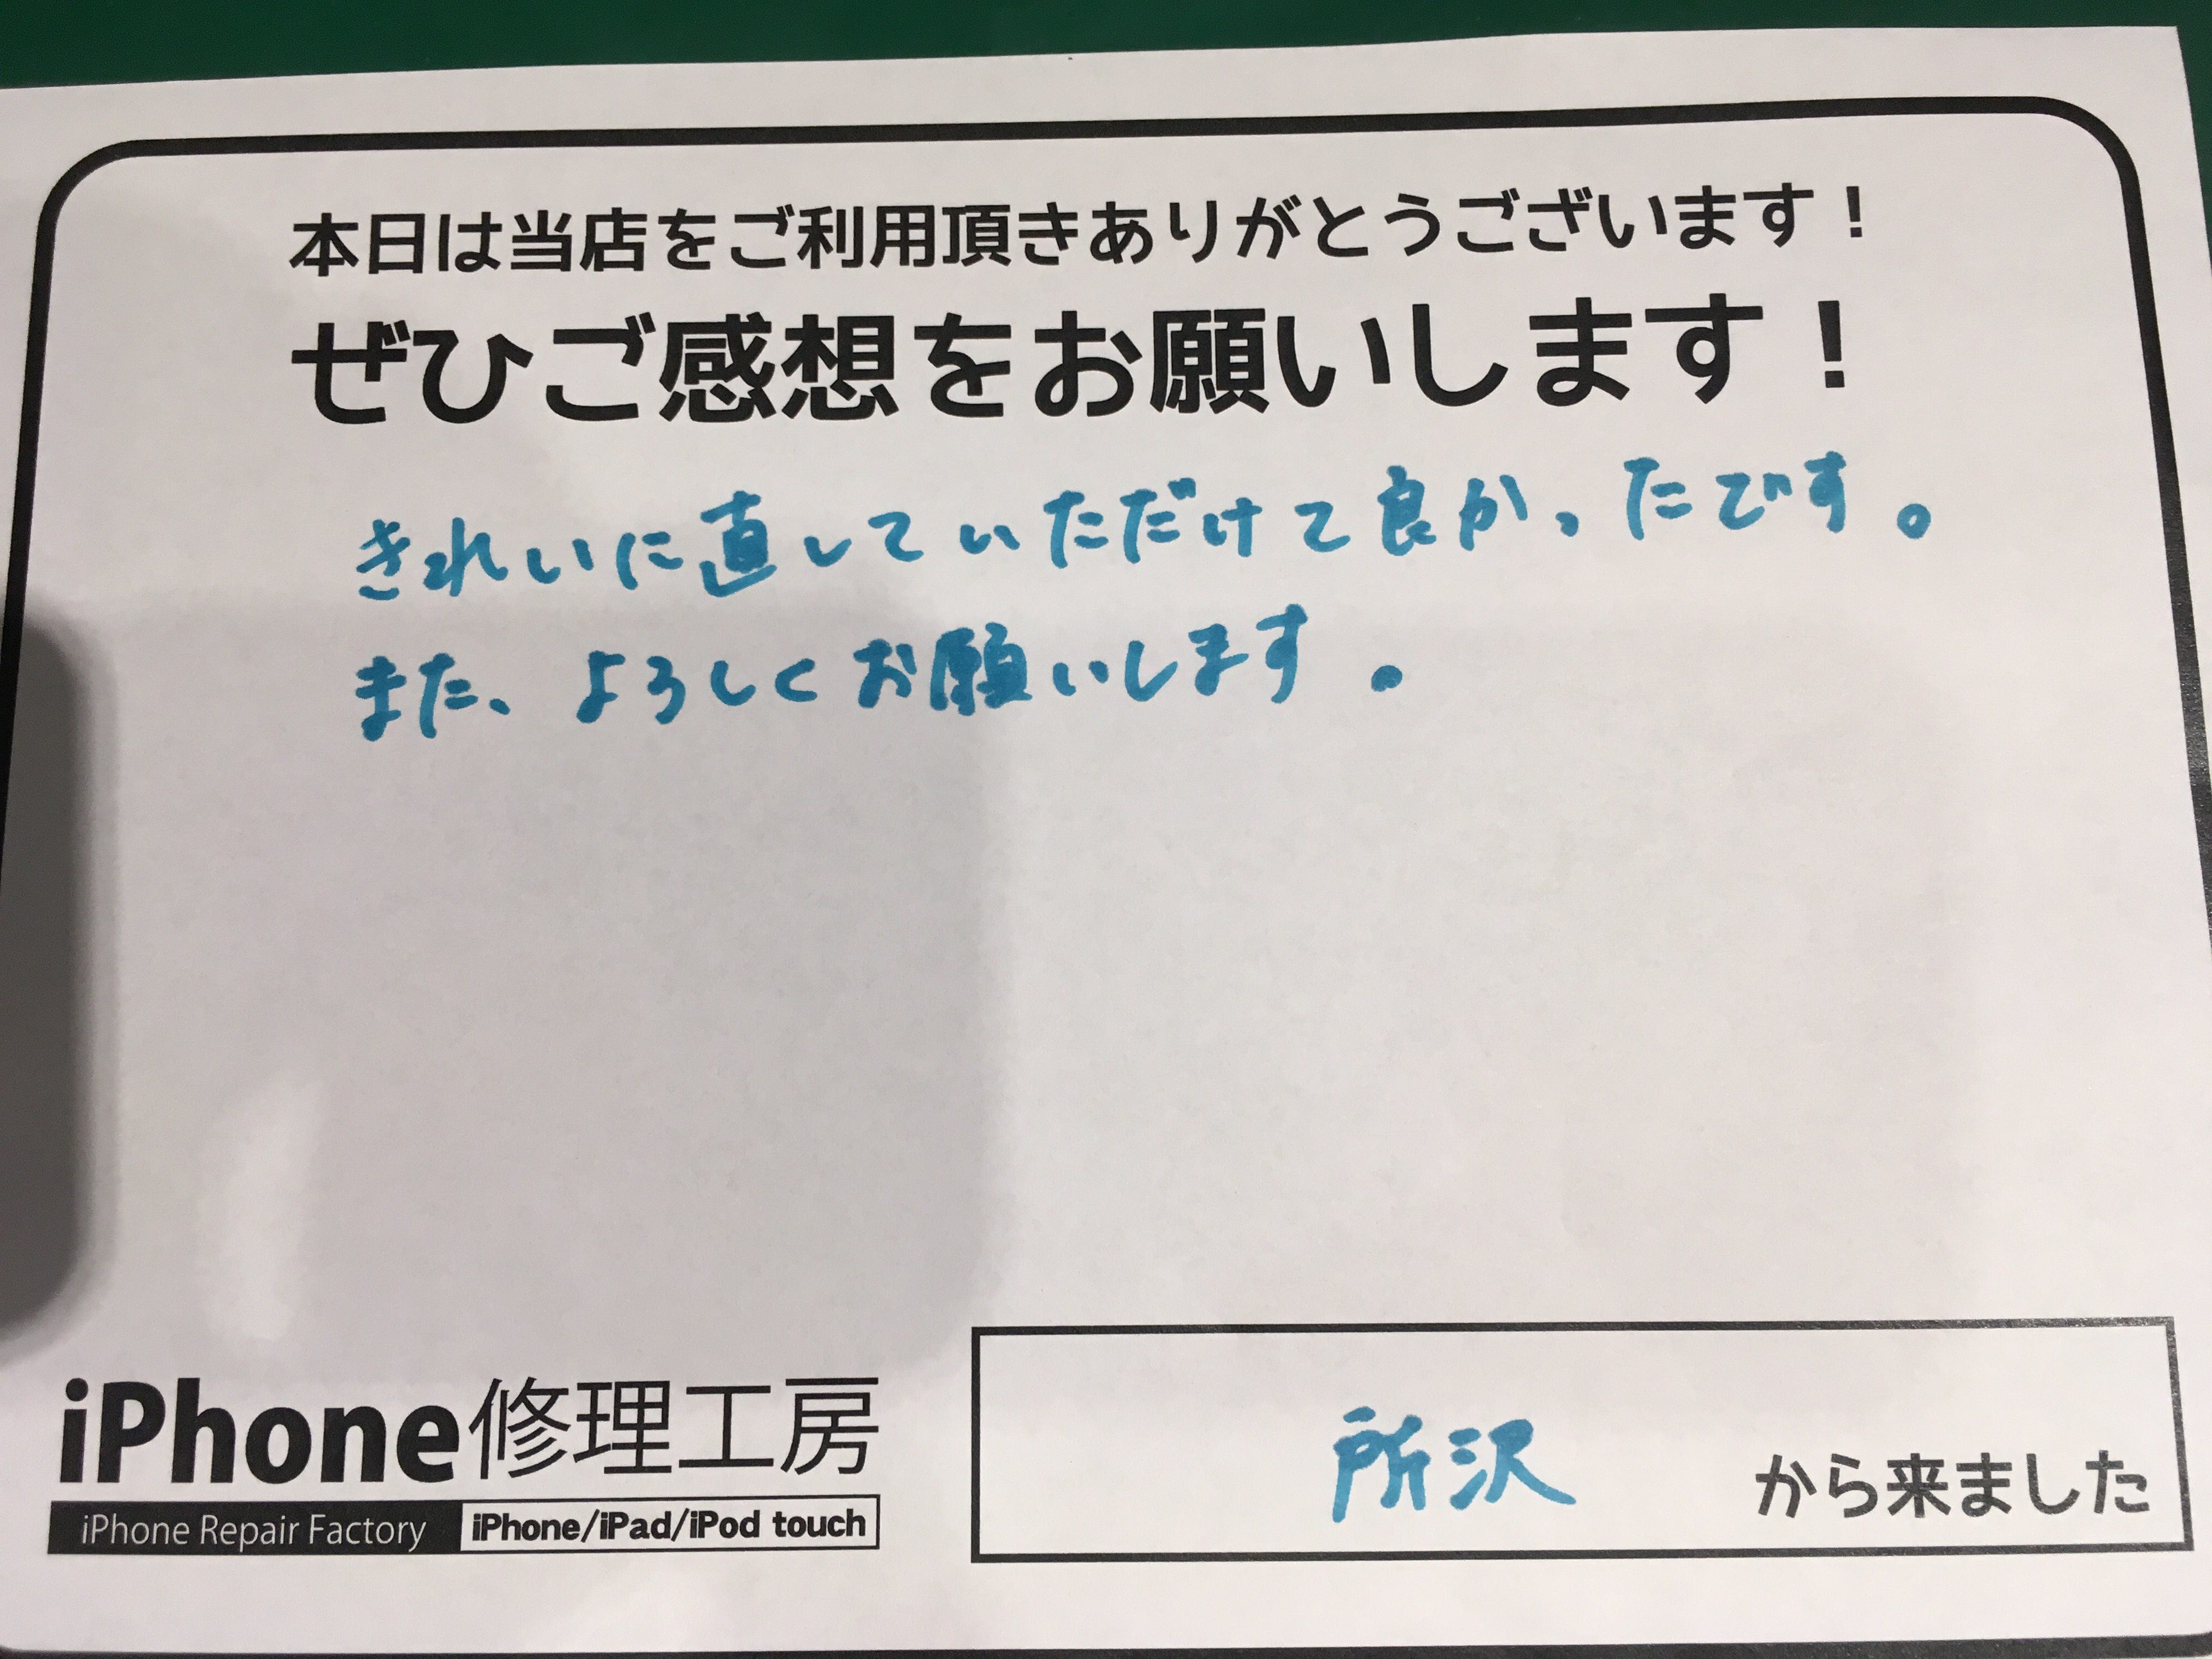 本日は当店をご利用頂きありがとうございます！
ぜひご感想をお願いします！
きれいに直していただけて良かったです。
また、よろしくお願いします。
iPhone修理工房
iPhone Repair Factory iPhone/iPad/iPod touch
所沢 から来ました